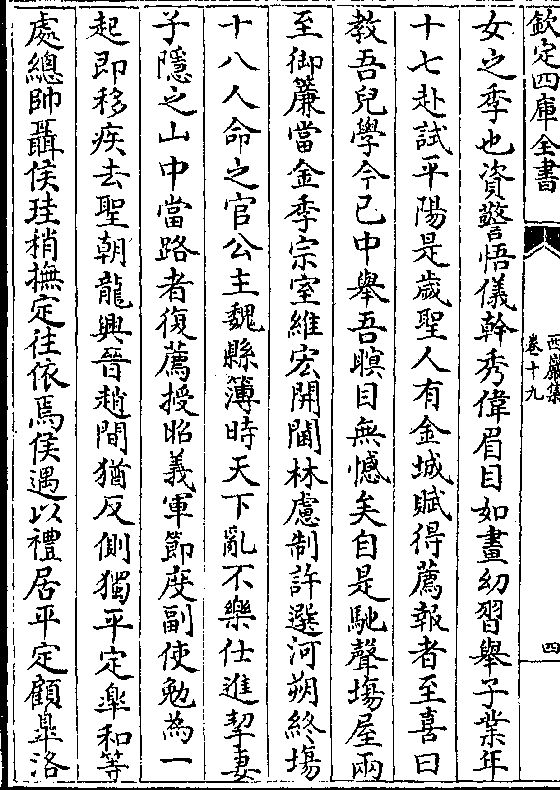 欽定四庫全書
西巖集
卷十九
四
女之季也資警悟儀幹秀偉眉目如畫幼習舉子業年
十七赴試平陽是歲聖人有金城賦得薦報者至喜曰
教吾兒學今已中舉吾瞑目無憾矣自是馳聲塲屋兩
至御簾當金季宗室維宏開閫林慮制許選河朔終塲
十八人命之官公主魏縣簿時天下亂不樂仕進挈妻
子隱之山中當路者復薦授昭義軍節度副使勉為一
起即移疾去聖朝龍興晉趙間猶反側獨平定樂和等
處總帥聶侯珪稍撫定往依焉侯遇以禮居平定顧鼂洛